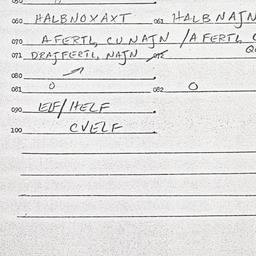 060 HALBNOXAXT 061 HALBNAJN
070 AFERTL, CUNAJN / AFERTL,
071 DRAJFERTL, NAJN 072
080
081 0 082 0
090 ELF/HELF
100 CVELF